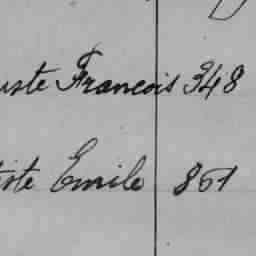 uste Francois 348
iste Emile 851